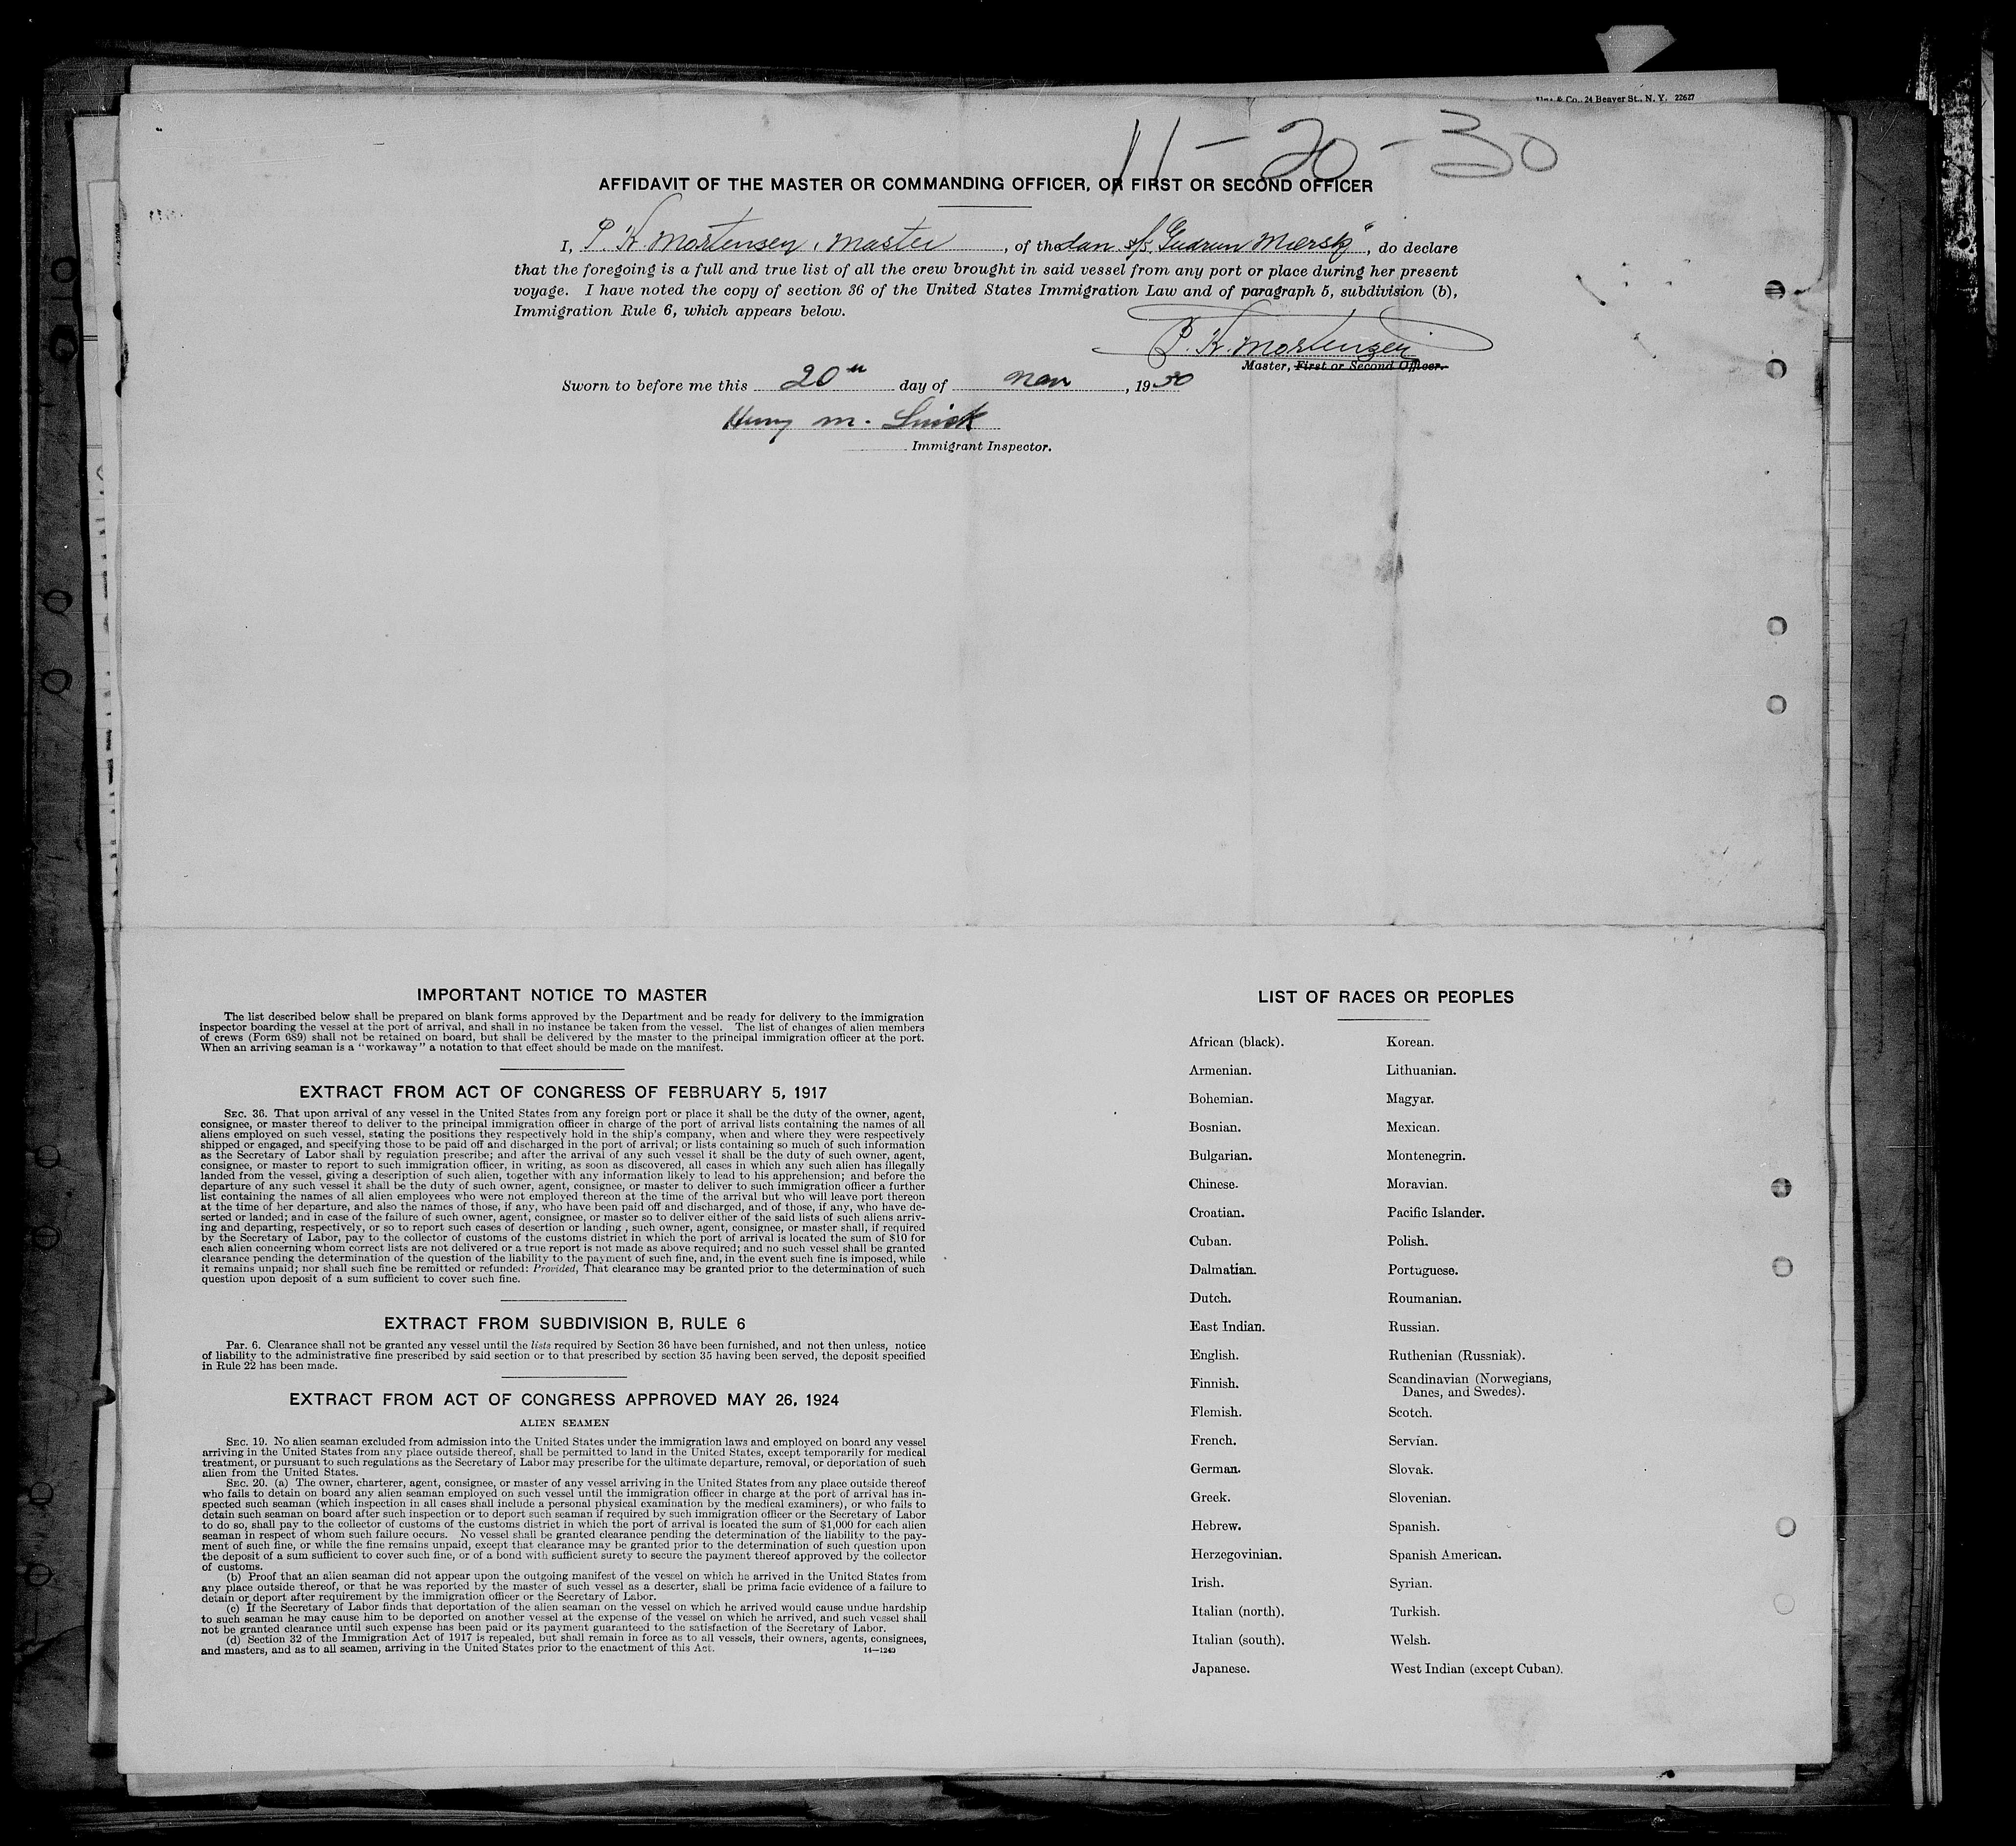 & Co., 24 Beaver St., N. Y. 22627
11-20-30
AFFIDAVIT OF THE MASTER OR COMMANDING OFFICER, OR FIRST OR SECOND OFFICER
I, P. K. Mortensen, Master, of the dan. s/s. "Gudrun Mærsk", do declare
that the foregoing is a full and true list of all the crew brought in said vessel from any port or place during her present
voyage. I have noted the copy of section 36 of the United States Immigration Law and of paragraph 5, subdivision (b),
Immigration Rule 6, which appears below.
P. K. Mortensen
Master, First or Second Officer.
Sworn to before me this 20th day of Nov, 1930
Henry M.
Immigrant Inspector.
IMPORTANT NOTICE TO MASTER
The list described below shall be prepared on blank forms approved by the Department and be ready for delivery to the immigration
inspector boarding the vessel at the port of arrival, and shall in no instance be taken from the vessel. The list of changes of alien members
of crews (Form 689) shall not be retained on board, but shall be delivered by the master to the principal immigration officer at the port.
When an arriving seaman is a "workaway" a notation to that effect should be made on the manifest.
EXTRACT FROM ACT OF CONGRESS OF FEBRUARY 5, 1917
SEC. 36. That upon arrival of any vessel in the United States from any foreign port or place it shall be the duty of the owner, agent,
consignee, or master thereof to deliver to the principal immigration officer in charge of the port of arrival lists containing the names of all
aliens employed on such vessel, stating the positions they respectively hold in the ship's company, when and where they were respectively
shipped or engaged, and specifying those to be paid off and discharged in the port of arrival; or lists containing so much of such information
as the Secretary of Labor shall by regulation prescribe; and after the arrival of any such vessel it shall be the duty of such owner, agent,
consignee, or master to report to such immigration officer, in writing, as soon as discovered, all cases in which any such alien has illegally
landed from the vessel, giving a description of such alien, together with any information likely to lead to his apprehension; and before the
departure of any such vessel it shall be the duty of such owner, agent, consignee, or master to deliver to such immigration officer a further
list containing the names of all alien employees who were not employed thereon at the time of the arrival but who will leave port thereon
at the time of her departure, and also the names of those, if any, who have been paid off and discharged, and of those, if any, who have de-
serted or landed; and in case of the failure of such owner, agent, consignee, or master so to deliver either of the said lists of such aliens arriv-
ing and departing, respectively, or so to report such cases of desertion or landing, such owner, agent, consignee, or master shall, if required
by the Secretary of Labor, pay to the collector of customs of the customs district in which the port of arrival is located the sum of $10 for
each alien concerning whom correct lists are not delivered or a true report is not made as above required; and no such vessel shall be granted
clearance pending the determination of the question of the liability to the payment of such fine, and, in the event such fine is imposed, while
it remains unpaid; nor shall such fine be remitted or refunded: Provided, That clearance may be granted prior to the determination of such
question upon deposit of a sum sufficient to cover such fine.
EXTRACT FROM SUBDIVISION B, RULE 6
Par. 6. Clearance shall not be granted any vessel until the lists required by Section 36 have been furnished, and not then unless, notice
of liability to the administrative fine prescribed by said section or to that prescribed by section 35 having been served, the deposit specified
in Rule 22 has been made.
EXTRACT FROM ACT OF CONGRESS APPROVED MAY 26, 1924
ALIEN SEAMEN
SEC. 19. No alien seaman excluded from admission into the United States under the immigration laws and employed on board any vessel
arriving in the United States from any place outside thereof, shall be permitted to land in the United States, except temporarily for medical
treatment, or pursuant to such regulations as the Secretary of Labor may prescribe for the ultimate departure, removal, or deportation of such
alien from the United States.
SEC. 20. (a) The owner, charterer, agent, consignee, or master of any vessel arriving in the United States from any place outside thereof
who fails to detain on board any alien seaman employed on such vessel until the immigration officer in charge at the port of arrival has in-
spected such seaman (which inspection in all cases shall include a personal physical examination by the medical examiners), or who fails to
detain such seaman on board after such inspection or to deport such seaman if required by such immigration officer or the Secretary of Labor
to do so, shall pay to the collector of customs of the customs district in which the port of arrival is located the sum of $1,000 for each alien
seaman in respect of whom such failure occurs. No vessel shall be granted clearance pending the determination of the liability to the pay-
ment of such fine, or while the fine remains unpaid, except that clearance may be granted prior to the determination of such question upon
the deposit of a sum sufficient to cover such fine, or of a bond with sufficient surety to secure the payment thereof approved by the collector
of customs.
(b) Proof that an alien seaman did not appear upon the outgoing manifest of the vessel on which he arrived in the United States from
any place outside thereof, or that he was reported by the master of such vessel as a deserter, shall be prima facie evidence of a failure to
detain or deport after requirement by the immigration officer or the Secretary of Labor.
(c) If the Secretary of Labor finds that deportation of the alien seaman on the vessel on which he arrived would cause undue hardship
to such seaman he may cause him to be deported on another vessel at the expense of the vessel on which he arrived, and such vessel shall
not be granted clearance until such expense has been paid or its payment guaranteed to the satisfaction of the Secretary of Labor.
(d) Section 32 of the Immigration Act of 1917 is repealed, but shall remain in force as to all vessels, their owners, agents, consignees,
and masters, and as to all seamen, arriving in the United States prior to the enactment of this Act.
14—1240
LIST OF RACES OR PEOPLES
African (black). Korean.
Armenian. Lithuanian.
Bohemian. Magyar.
Bosnian. Mexican.
Bulgarian. Montenegrin.
Chinese. Moravian.
Croatian. Pacific Islander.
Cuban. Polish.
Dalmatian. Portuguese.
Dutch. Roumanian.
East Indian. Russian.
English. Ruthenian (Russniak).
Finnish. Scandinavian (Norwegians,
Danes, and Swedes).
Flemish. Scotch.
French. Servian.
German. Slovak.
Greek. Slovenian.
Hebrew. Spanish.
Herzegovinian. Spanish American.
Irish. Syrian.
Italian (north). Turkish.
Italian (south). Welsh.
Japanese. West Indian (except Cuban).